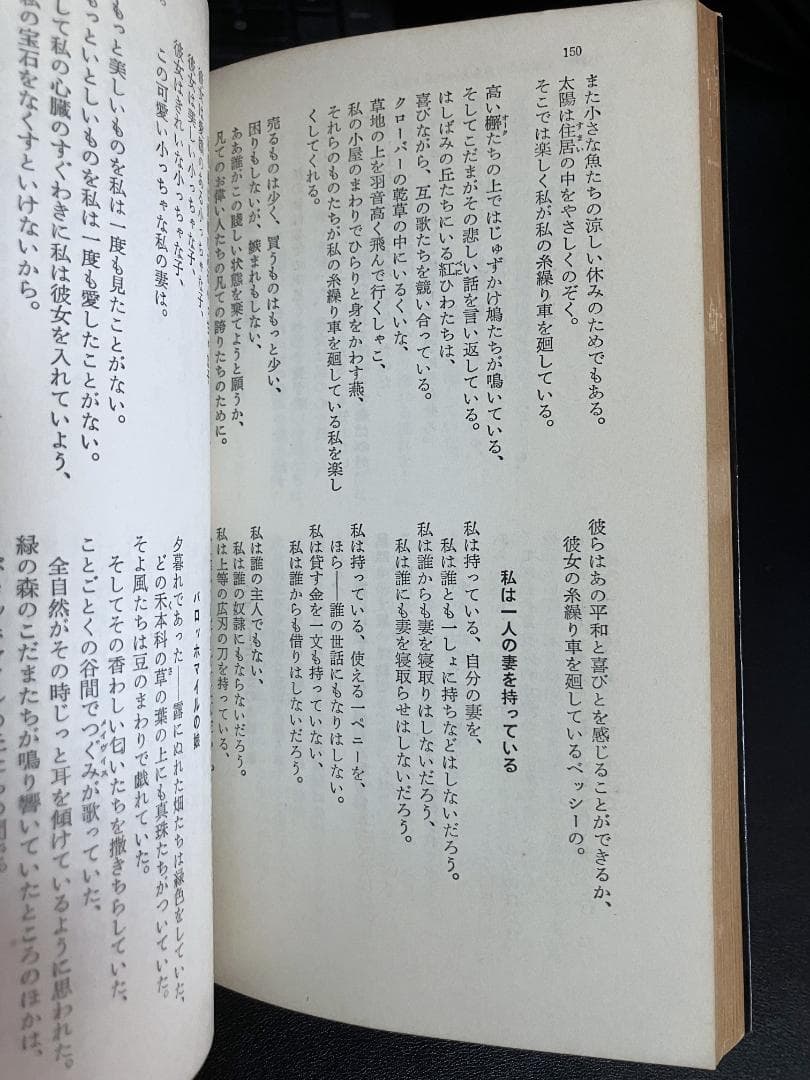 150
また小さな魚たちの涼しい休みのためでもある。
太陽は住居の中をやさしくのぞく。
すまい
そこでは楽しく私が私の糸繰り車を廻している。
高い檞たちの上ではじゅずかけ鳩たちが鳴いている、
そしてこだまがその悲しい話を言い返している。
はしばみの丘たちにいる紅ひわたちは、
べに
喜びながら、互の歌たちを競い合っている。
クローバーの乾草の中にいるくいな、
草地の上を羽音高く飛んで行くしゃこ、
私の小屋のまわりでひらりと身をかわす燕、
それらのものたちが私の糸繰り車を廻している私を楽し
くしてくれる。
売るものは少く、買うものはもっと少い、
困りもしないが、蔑まれもしない、
ああ誰がこの賤しい状態を棄てようと願うか、
凡てのお偉い人たちの凡ての誇りたちのために。
彼らはあの平和と喜びとを感じることができるか、
彼女の糸繰り車を廻しているベッシーの。
私は一人の妻を持っている
私は持っている、自分の妻を、
私は誰とも一しょに持ちなどはしないだろう、
私は誰からも妻を寝取りはしないだろう、
私は誰にも妻を寝取らせはしないだろう。
私は持っている、使える一ペニーを、
ほら――誰の世話にもなりはしない。
私は貸す金を一文も持っていない、
私は誰からも借りはしないだろう。
私は誰の主人でもない、
私は誰の奴隷にもならないだろう。
私は上等の広刃の刀を持っている、
彼女は美しい小っちゃな子、
彼女はきれいな小っちゃな子、
この可愛い小っちゃな私の妻は。
もっと美しいものを私は一度も見たことがない。
もっといとしいものを私は一度も愛したことがない。
して私の心臓のすぐわきに私は彼女を入れていよう、
私の宝石をなくすといけないから。
バロッホマイルの娘
夕暮れであった――露にぬれた畑たちは緑色をしていた、
どの禾本科の草の葉の上にも真珠たちがついていた。
そよ風たちは豆のまわりで戯れていた。
そしてその香わしい匂いたちを撒きちらしていた、
ことごとくの谷間でつぐみが歌っていた、
メイヴィス
全自然がその時じっと耳を傾けているように思われた。
緑の森のこだまたちが鳴り響いていたところのほかは、